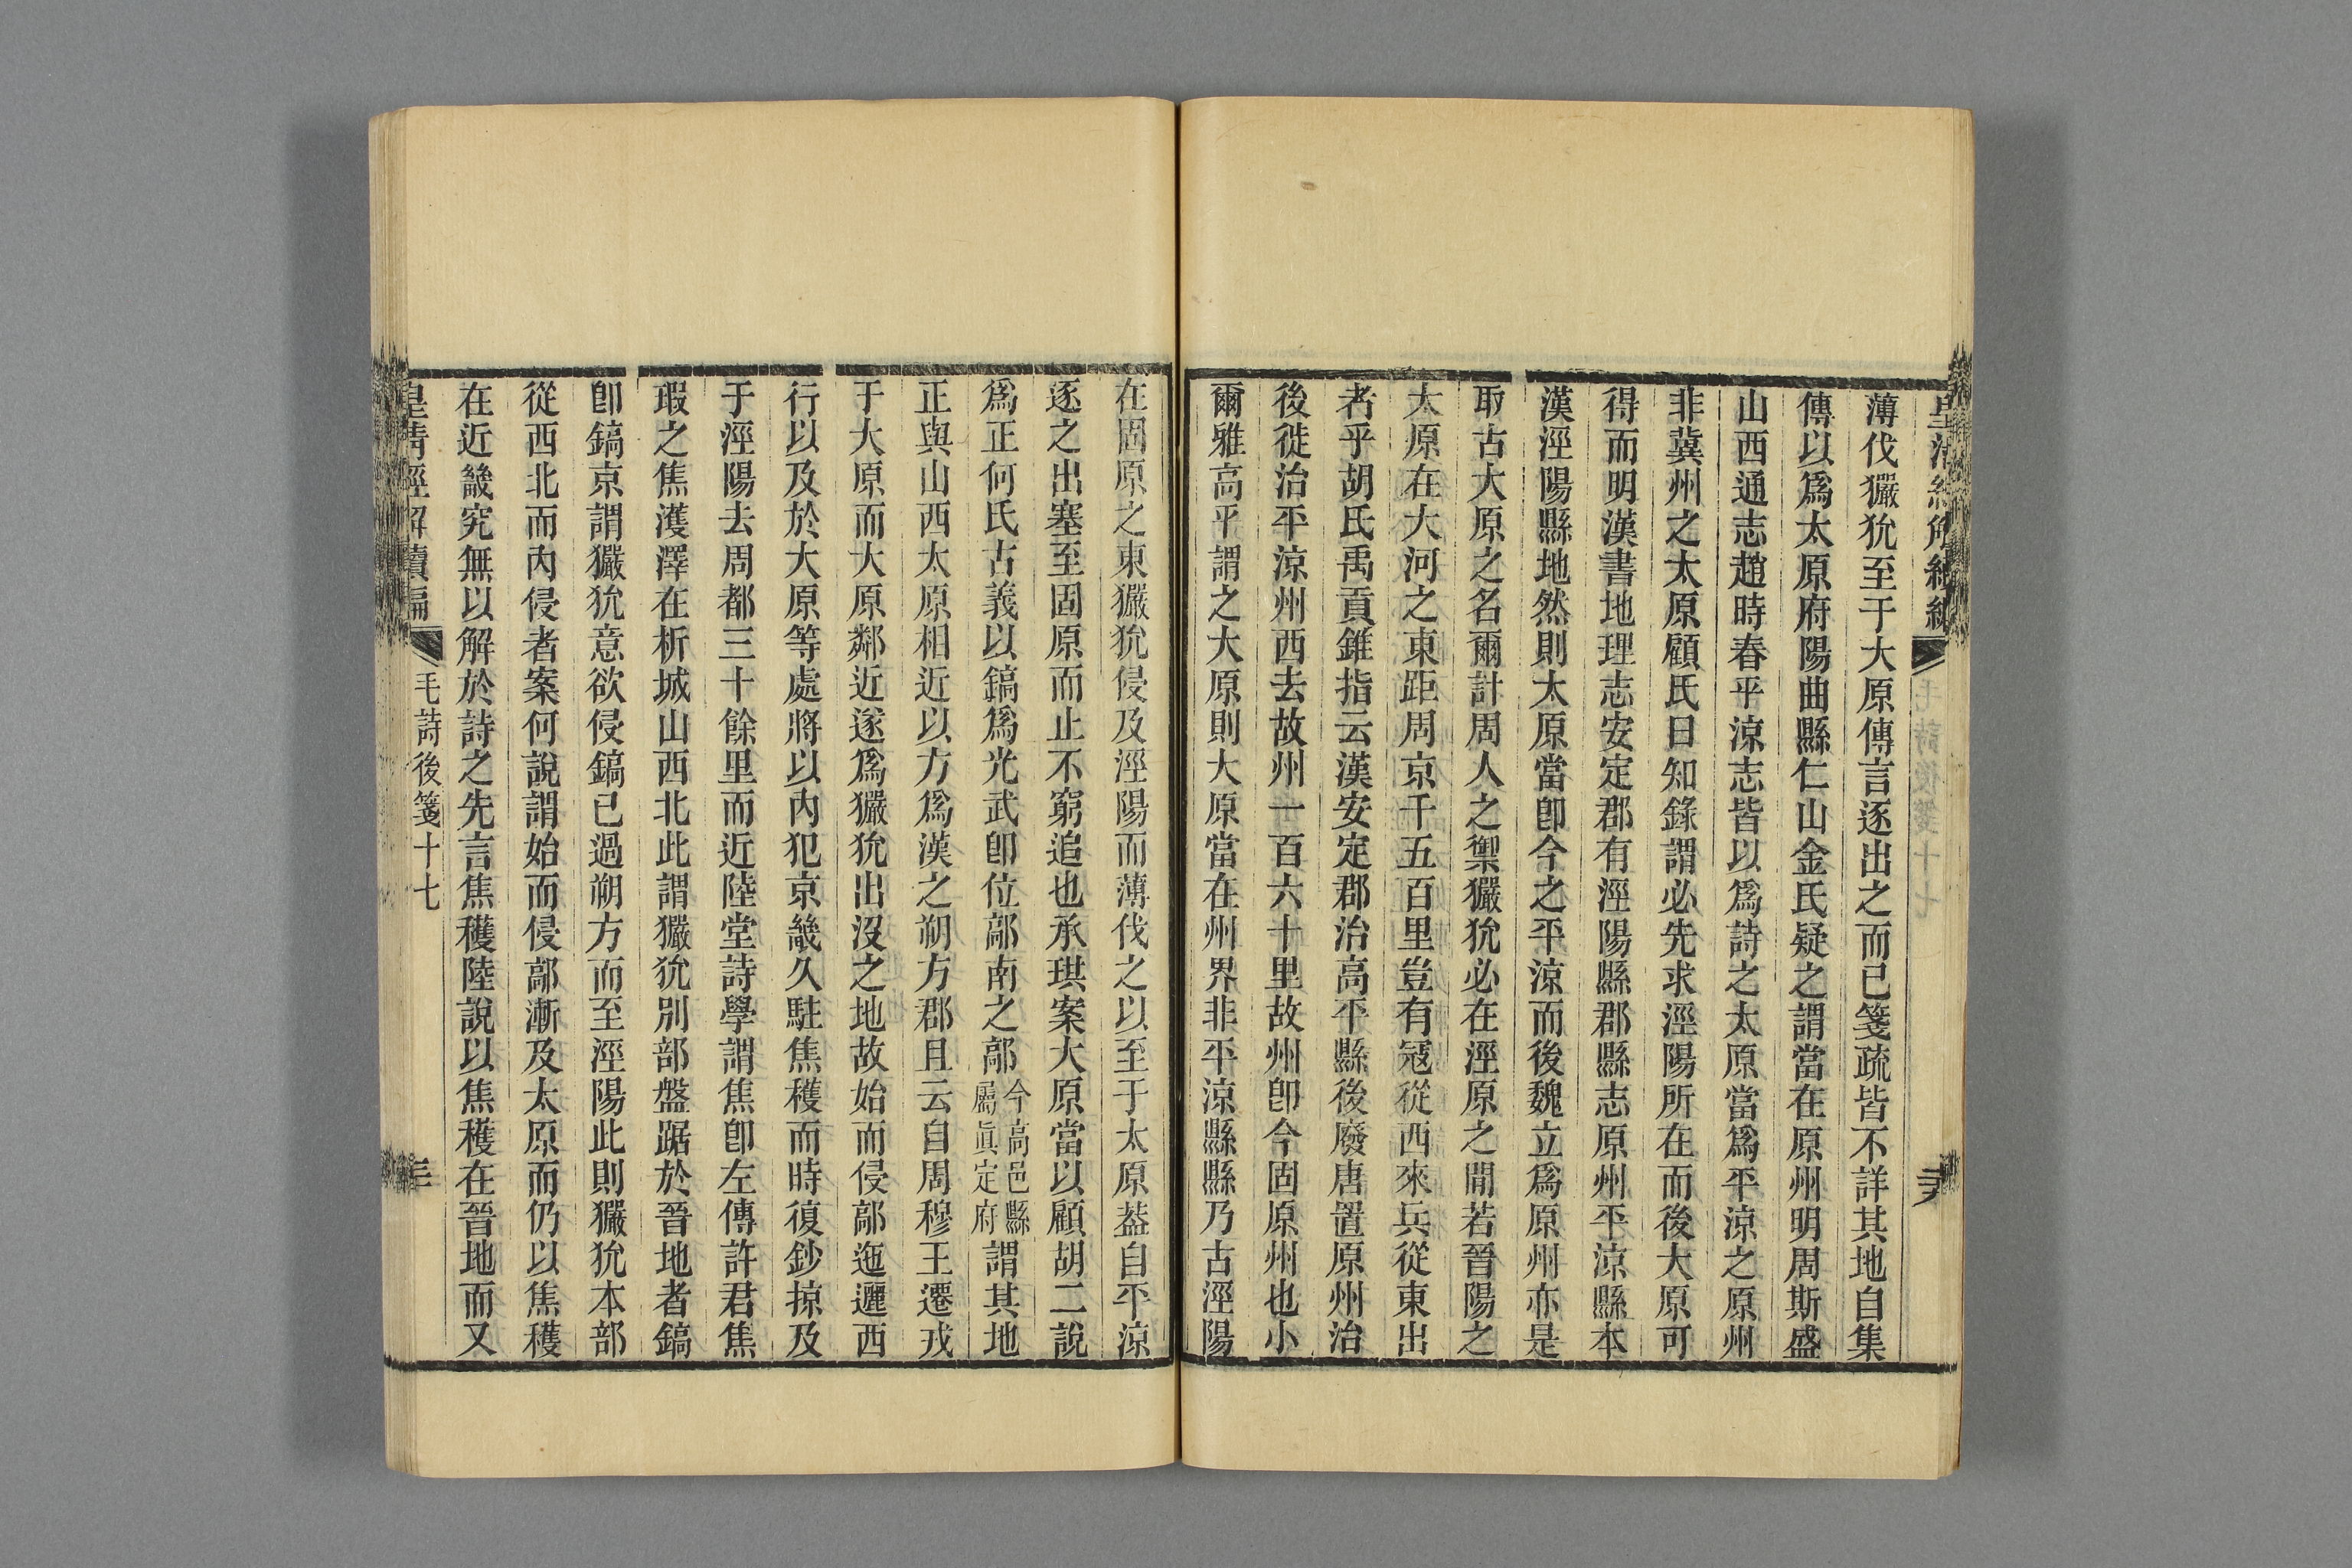 薄伐玁狁至于大原傳言逐出之而已箋疏皆不詳其地自集
傳以爲太原府陽曲縣仁山金氏疑之謂當在原州明周斯盛
山西通志趙時春平涼志皆以爲詩之太原當爲平涼之原州
非冀州之太原顧氏日知錄謂必先求涇陽所在而後大原可
得而明漢書地理志安定郡有涇陽縣郡縣志原州平涼縣本
漢涇陽縣地然則太原當卽今之平涼而後魏立爲原州亦是
取古大原之名爾計周人之禦玁狁必在涇原之閒若晉陽之
太原在大河之東距周京千五百里豈有寇從西來兵從東出
者乎胡氏禹貢錐指云漢安定郡治高平縣後廢唐置原州治
後徙治平涼州西去故州一百六十里故州卽今固原州也小
爾雅高平謂之大原則大原當在州界非平涼縣縣乃古涇陽
在固原之東玁狁侵及涇陽而薄伐之以至于太原葢自平涼
逐之出塞至固原而止不窮追也承珙案大原當以顧胡二說
爲正何氏古義以鎬爲光武卽位鄗南之鄗今高邑縣屬眞定府謂其地
正與山西太原相近以方爲漢之朔方郡且云自周穆王遷戎
于大原而大原鄰近遂爲玁狁出沒之地故始而侵鄗迤邐西
行以及於大原等處將以內犯京畿久駐焦穫而時復鈔掠及
于涇陽去周都三十餘里而近陸堂詩學謂焦卽左傳許君焦
瑕之焦濩澤在析城山西北此謂玁狁別部盤踞於晉地者鎬
卽鎬京謂玁狁意欲侵鎬已過朔方而至涇陽此則玁狁本部
從西北而內侵者案何說謂始而侵鄗漸及太原而仍以焦穫
在近畿究無以解於詩之先言焦穫陸說以焦穫在晉地而又
皇清經解續編 毛詩後箋十七